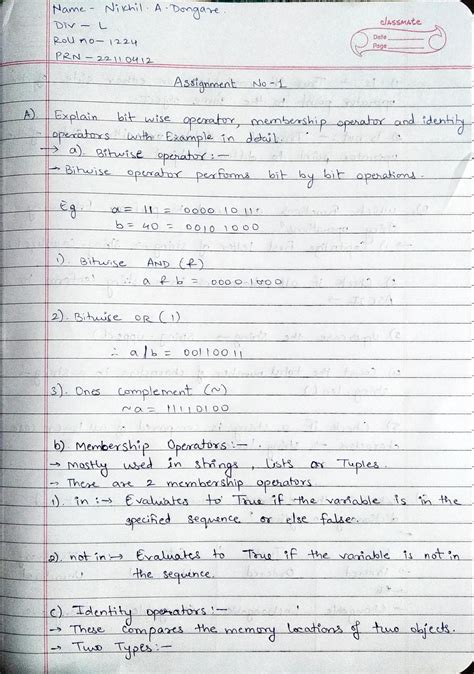 Name - Nikhil . A . Dongare.
DIV - L
Roll no - 1224
PRN - 22110412
classmate
Date
Page
Assignment No - 1
A) Explain bit wise operator, membership operator and identity
operators with Example in detail.
→ a). Bitwise operator :-
- Bitwise operator performs bit by bit operations.
Eg. a = 11 = 0000 10 11
b = 40 = 0010 1000
1) Bitwise AND (&)
∴ a & b = 0000 1000
2). Bitwise OR ( | )
∴ a/b = 00110011
3). Ones complement (~)
~a = 11110100
b). Membership Operators :-
→ Mostly used in strings, lists or Tuples.
→ There are 2 membership operators
1). in :→ Evaluates to True if the variable is in the
specified sequence or else false.
2). not in → Evaluates to True if the variable is not in
the sequence.
c) Identity operators :-
→ These compares the memory locations of two objects.
→ Two Types :-